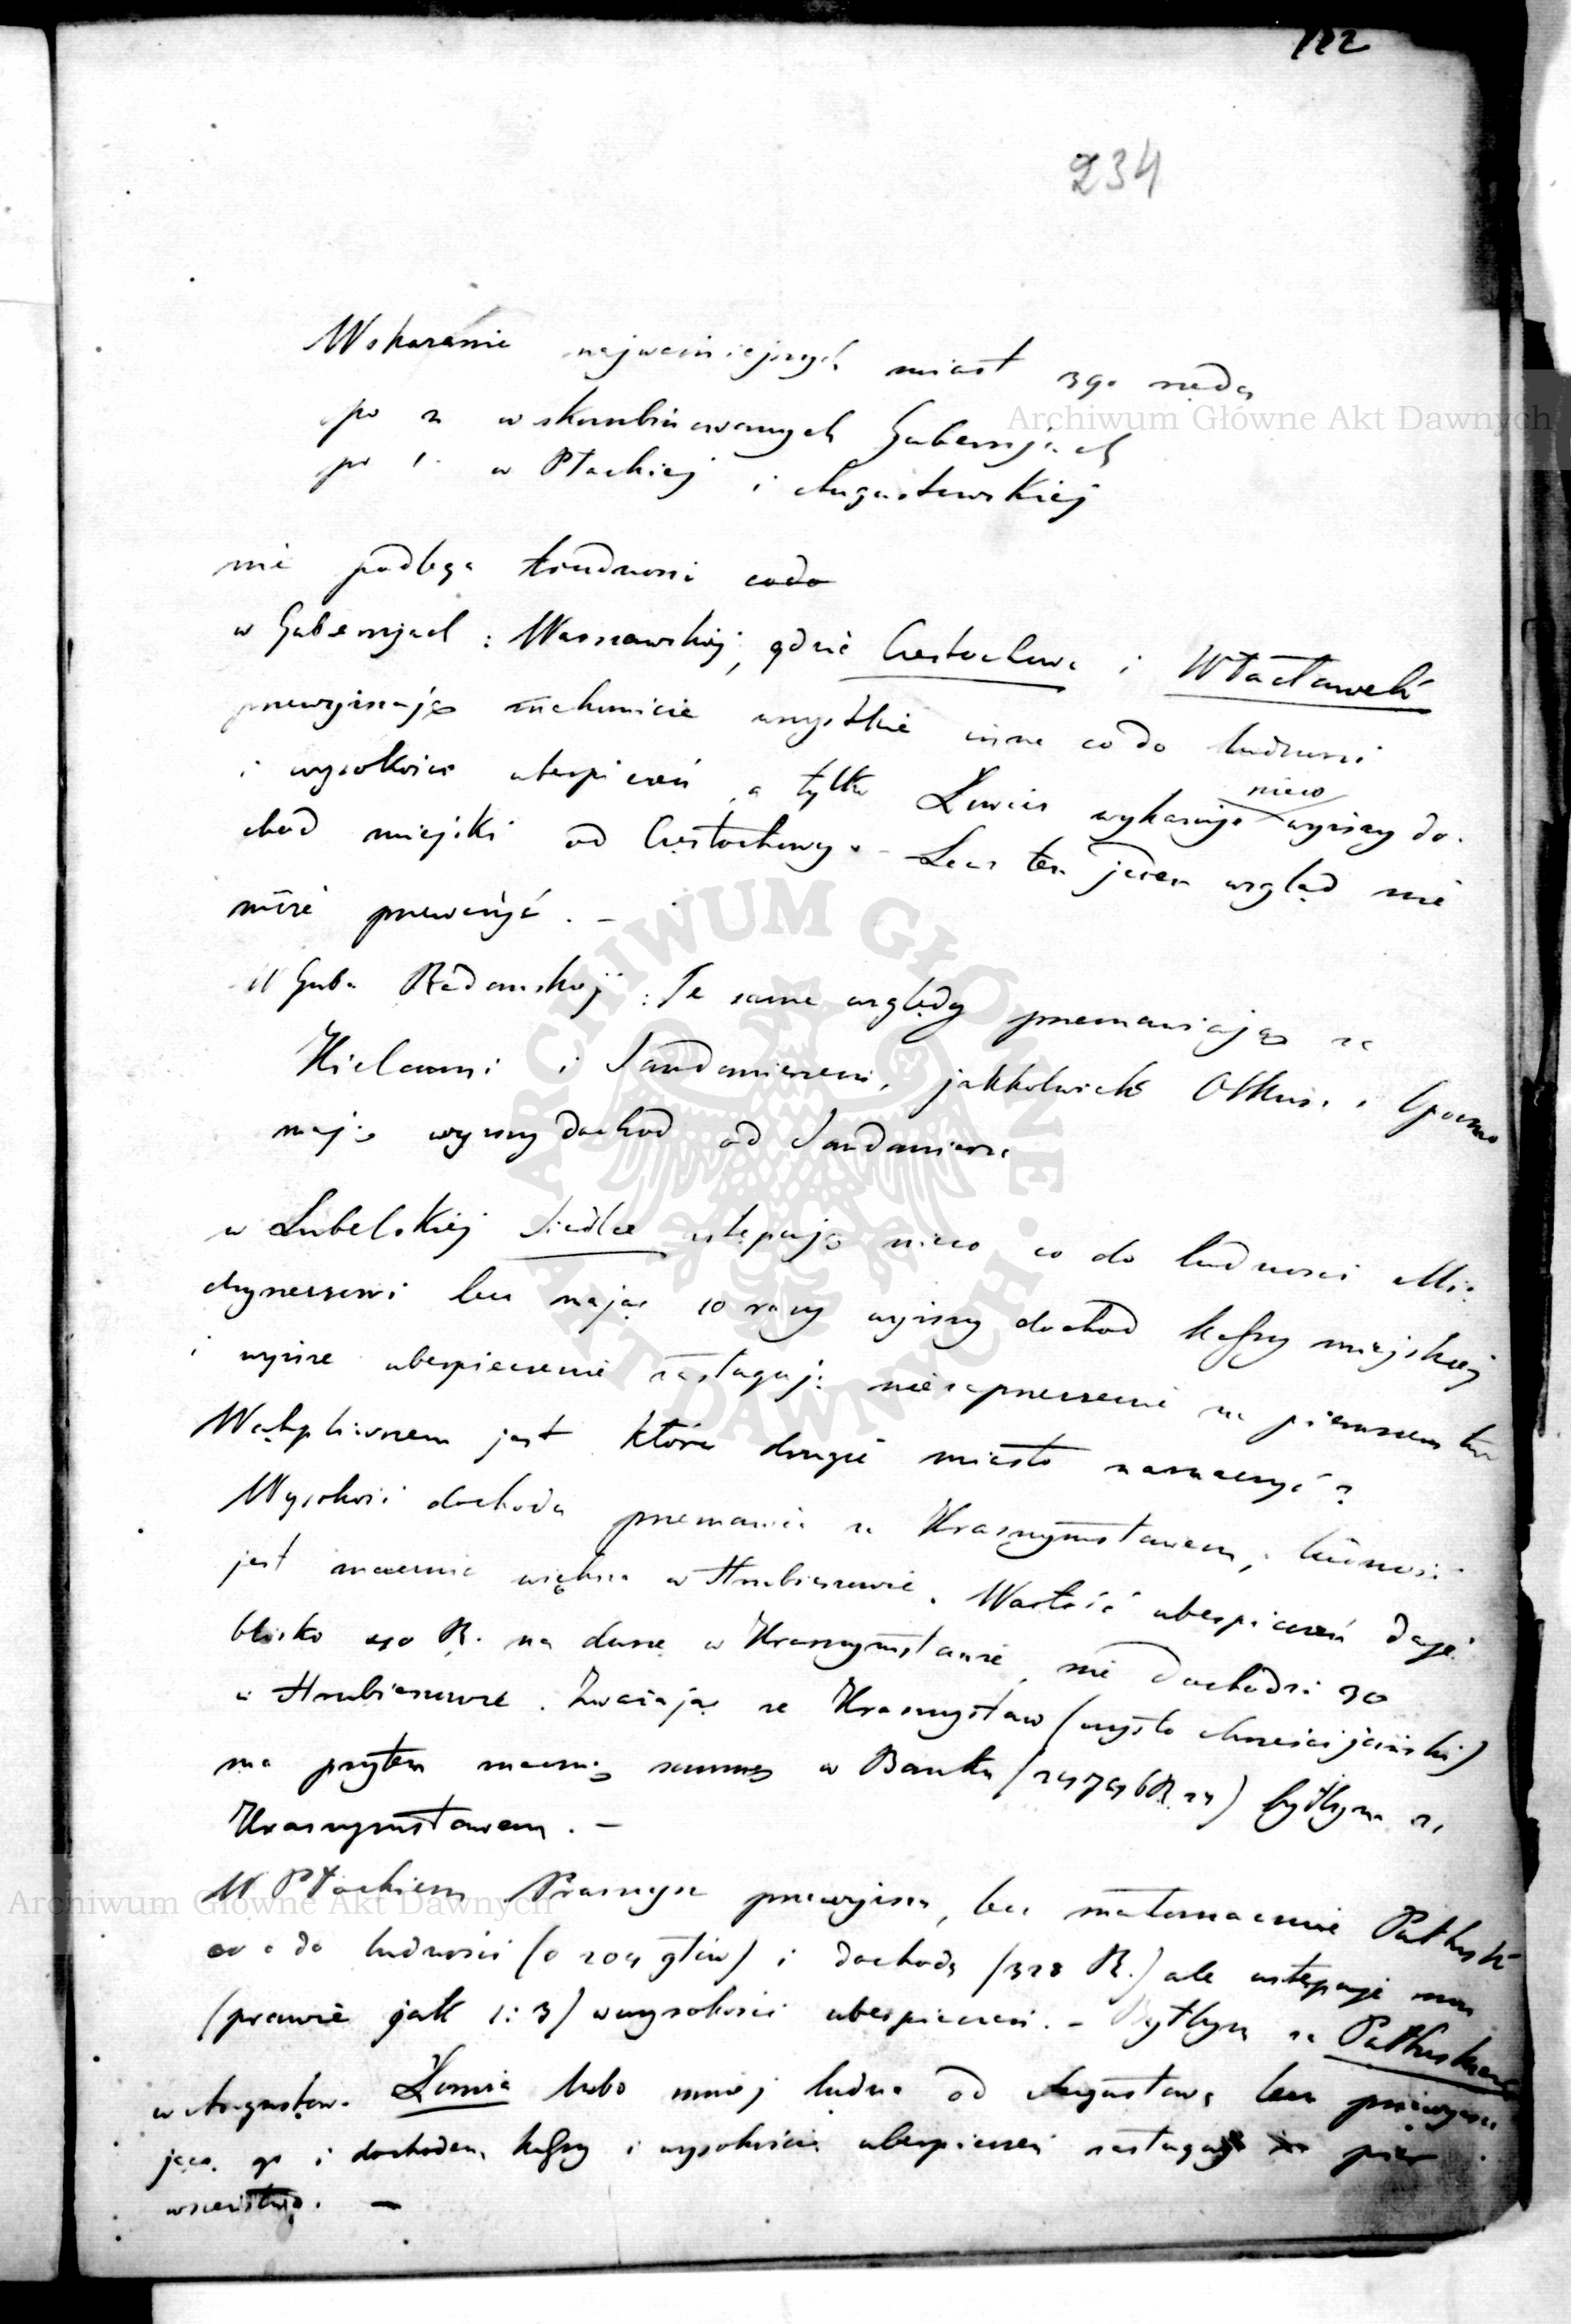 112
234
Wskazanie najważniejszych miast 3go rzędu
po 2 w skombinowanych Gubernjach
po 1. w Płockiej i Augustowskiej
nie podlega trudności codo
w Gubernjach: Warszawskiej, gdzie Częstochowa i Włocławek
przewyższają znakomicie wszystkie inne co do ludności
i wysokości ubezpieczeń, a tylko Łowicz wykazuje nieco wyższy do-
chod miejski od Częstochowy. – Lecz ten jeden wzgląd nie
może przeważyć. –
W Gub. Radomskiej: Te same względy przemawiają za
Kielcami i Sandomierzem, jakkolwiek Olkusz i Opoczno
mają wyższy dochod od Sandomierza
w Lubelskiej Siedlce ustępują nieco co do ludności Mię-
dzyrzecowi lecz mając 10 razy wyższy dochod kassy miejskiej
i wyższe ubezpieczenie zasługują niezaprzeczenie na pierwszeństwo
Wątpliwszem jest które drugie miasto naznaczyć?
Wysokość dochodu przemawia za Krasnymstawem, ludność
jest znacznie większa w Hrubieszowie. Wartość ubezpieczeń daje
blisko R. na duszę w Krasnymstawie, nie dochodzi 30
w Hrubieszowie. Zważając ze Krasnystaw (czysto chrześcijański)
ma przytem znaczną summę w Banku byłbym za
Krasnymstawem. –
W Płockiem Prasnysz przewyższa, lecz małoznacznie Pułtusk
co do ludności (o 204 głów) i dochodu (328 R.) ale ustępuje mu
(prawie jak 1:3) w wysokości ubezpieczeń. – Byłbym za Pułtuskiem
w Augustow. Łomża lubo mniej ludna od Augustowa lecz przewyższa-
jąca go i dochodem kassy i wysokością ubezpieczeń zasługuje na pier-
wszeństwo. –
Archiwum Główne Akt Dawnych
ARCHIWUM GŁÓWNE AKT DAWNYCH
Archiwum Główne Akt Dawnych